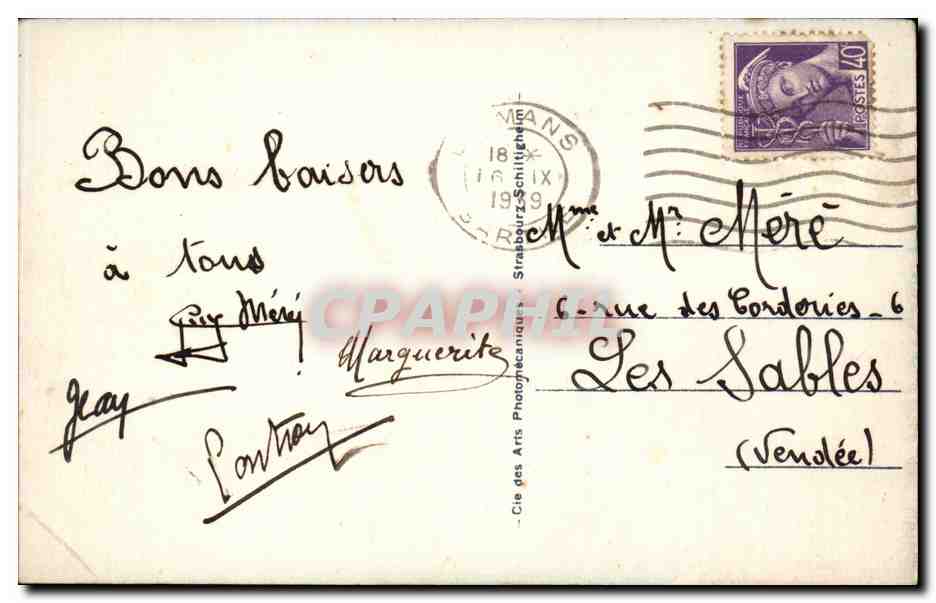 Bons baisers
à tous
Guy Méré
Marguerite
Jean
Cie des Arts Photomécaniques - Strasbourg-Schiltigheim
MANS
18 X
16 IX
1939
40
POSTES
Mme et Mr Méré
6 - rue des Corderies - 6
Les Sables
(Vendée)
CPAPHIL